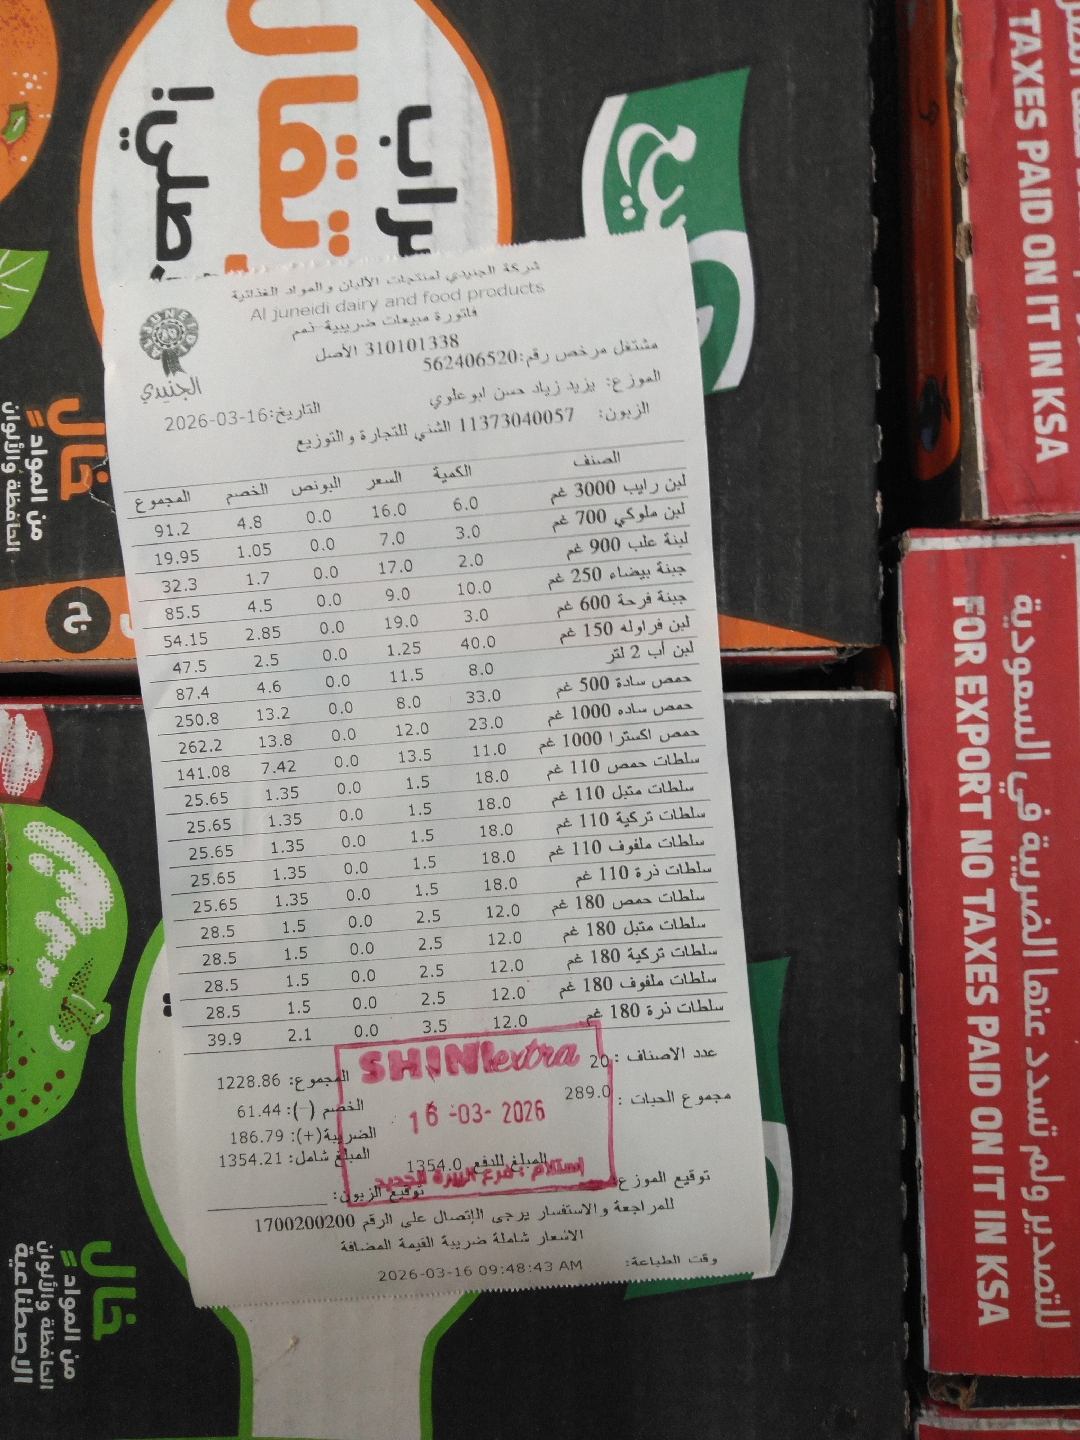 شركة الجنيدي لمنتجات الألبان والمواد الغذائية
Al juneidi dairy and food products
فاتورة مبيعات ضريبية-نمم
310101338 الأصل
مشتغل مرخص رقم:562406520
الجنيدي
الموزع: يزيد زياد حسن ابوعلوي
التاريخ:2026-03-16
الزبون: 11373040057 الشني للتجارة والتوزيع
الصنف الكمية السعر البونص الخصم المجموع
لبن رايب 3000 غم 6.0 16.0 0.0 4.8 91.2
لبن ملوكي 700 غم 3.0 7.0 0.0 1.05 19.95
لبنة علب 900 غم 2.0 17.0 0.0 1.7 32.3
جبنة بيضاء 250 غم 10.0 9.0 0.0 4.5 85.5
جبنة فرحة 600 غم 3.0 19.0 0.0 2.85 54.15
لبن فراوله 150 غم 40.0 1.25 0.0 2.5 47.5
لبن أب 2 لتر 8.0 11.5 0.0 4.6 87.4
حمص سادة 500 غم 33.0 8.0 0.0 13.2 250.8
حمص ساده 1000 غم 23.0 12.0 0.0 13.8 262.2
حمص اكسترا 1000 غم 11.0 13.5 0.0 7.42 141.08
سلطات حمص 110 غم 18.0 1.5 0.0 1.35 25.65
سلطات متبل 110 غم 18.0 1.5 0.0 1.35 25.65
سلطات تركية 110 غم 18.0 1.5 0.0 1.35 25.65
سلطات ملفوف 110 غم 18.0 1.5 0.0 1.35 25.65
سلطات ذرة 110 غم 18.0 1.5 0.0 1.35 25.65
سلطات حمص 180 غم 12.0 2.5 0.0 1.5 28.5
سلطات متبل 180 غم 12.0 2.5 0.0 1.5 28.5
سلطات تركية 180 غم 12.0 2.5 0.0 1.5 28.5
سلطات ملفوف 180 غم 12.0 2.5 0.0 1.5 28.5
سلطات ذرة 180 غم 12.0 3.5 0.0 2.1 39.9
عدد الاصناف : 20
المجموع: 1228.86
مجموع الحبات : 289.0
الخصم (-): 61.44
الضريبة(+): 186.79
المبلغ شامل: 1354.21
المبلغ للدفع 1354.0
SHINI extra
16-03-2026
إستلام : فرع البيرة الجديد
توقيع الموزع:
توقيع الزبون:
للمراجعة والاستفسار يرجى الإتصال على الرقم 1700200200
الاسعار شاملة ضريبة القيمة المضافة
وقت الطباعة: 2026-03-16 09:48:43 AM
براب
تقال
صلي!
خال
من المواد
الحافظة والألوان
خال
من المواد
الحافظة والألوان
الاصطناعية
TAXES PAID ON IT IN KSA
للتصدير ولم تسدد عنها الضريبة في السعودية
FOR EXPORT NO TAXES PAID ON IT IN KSA